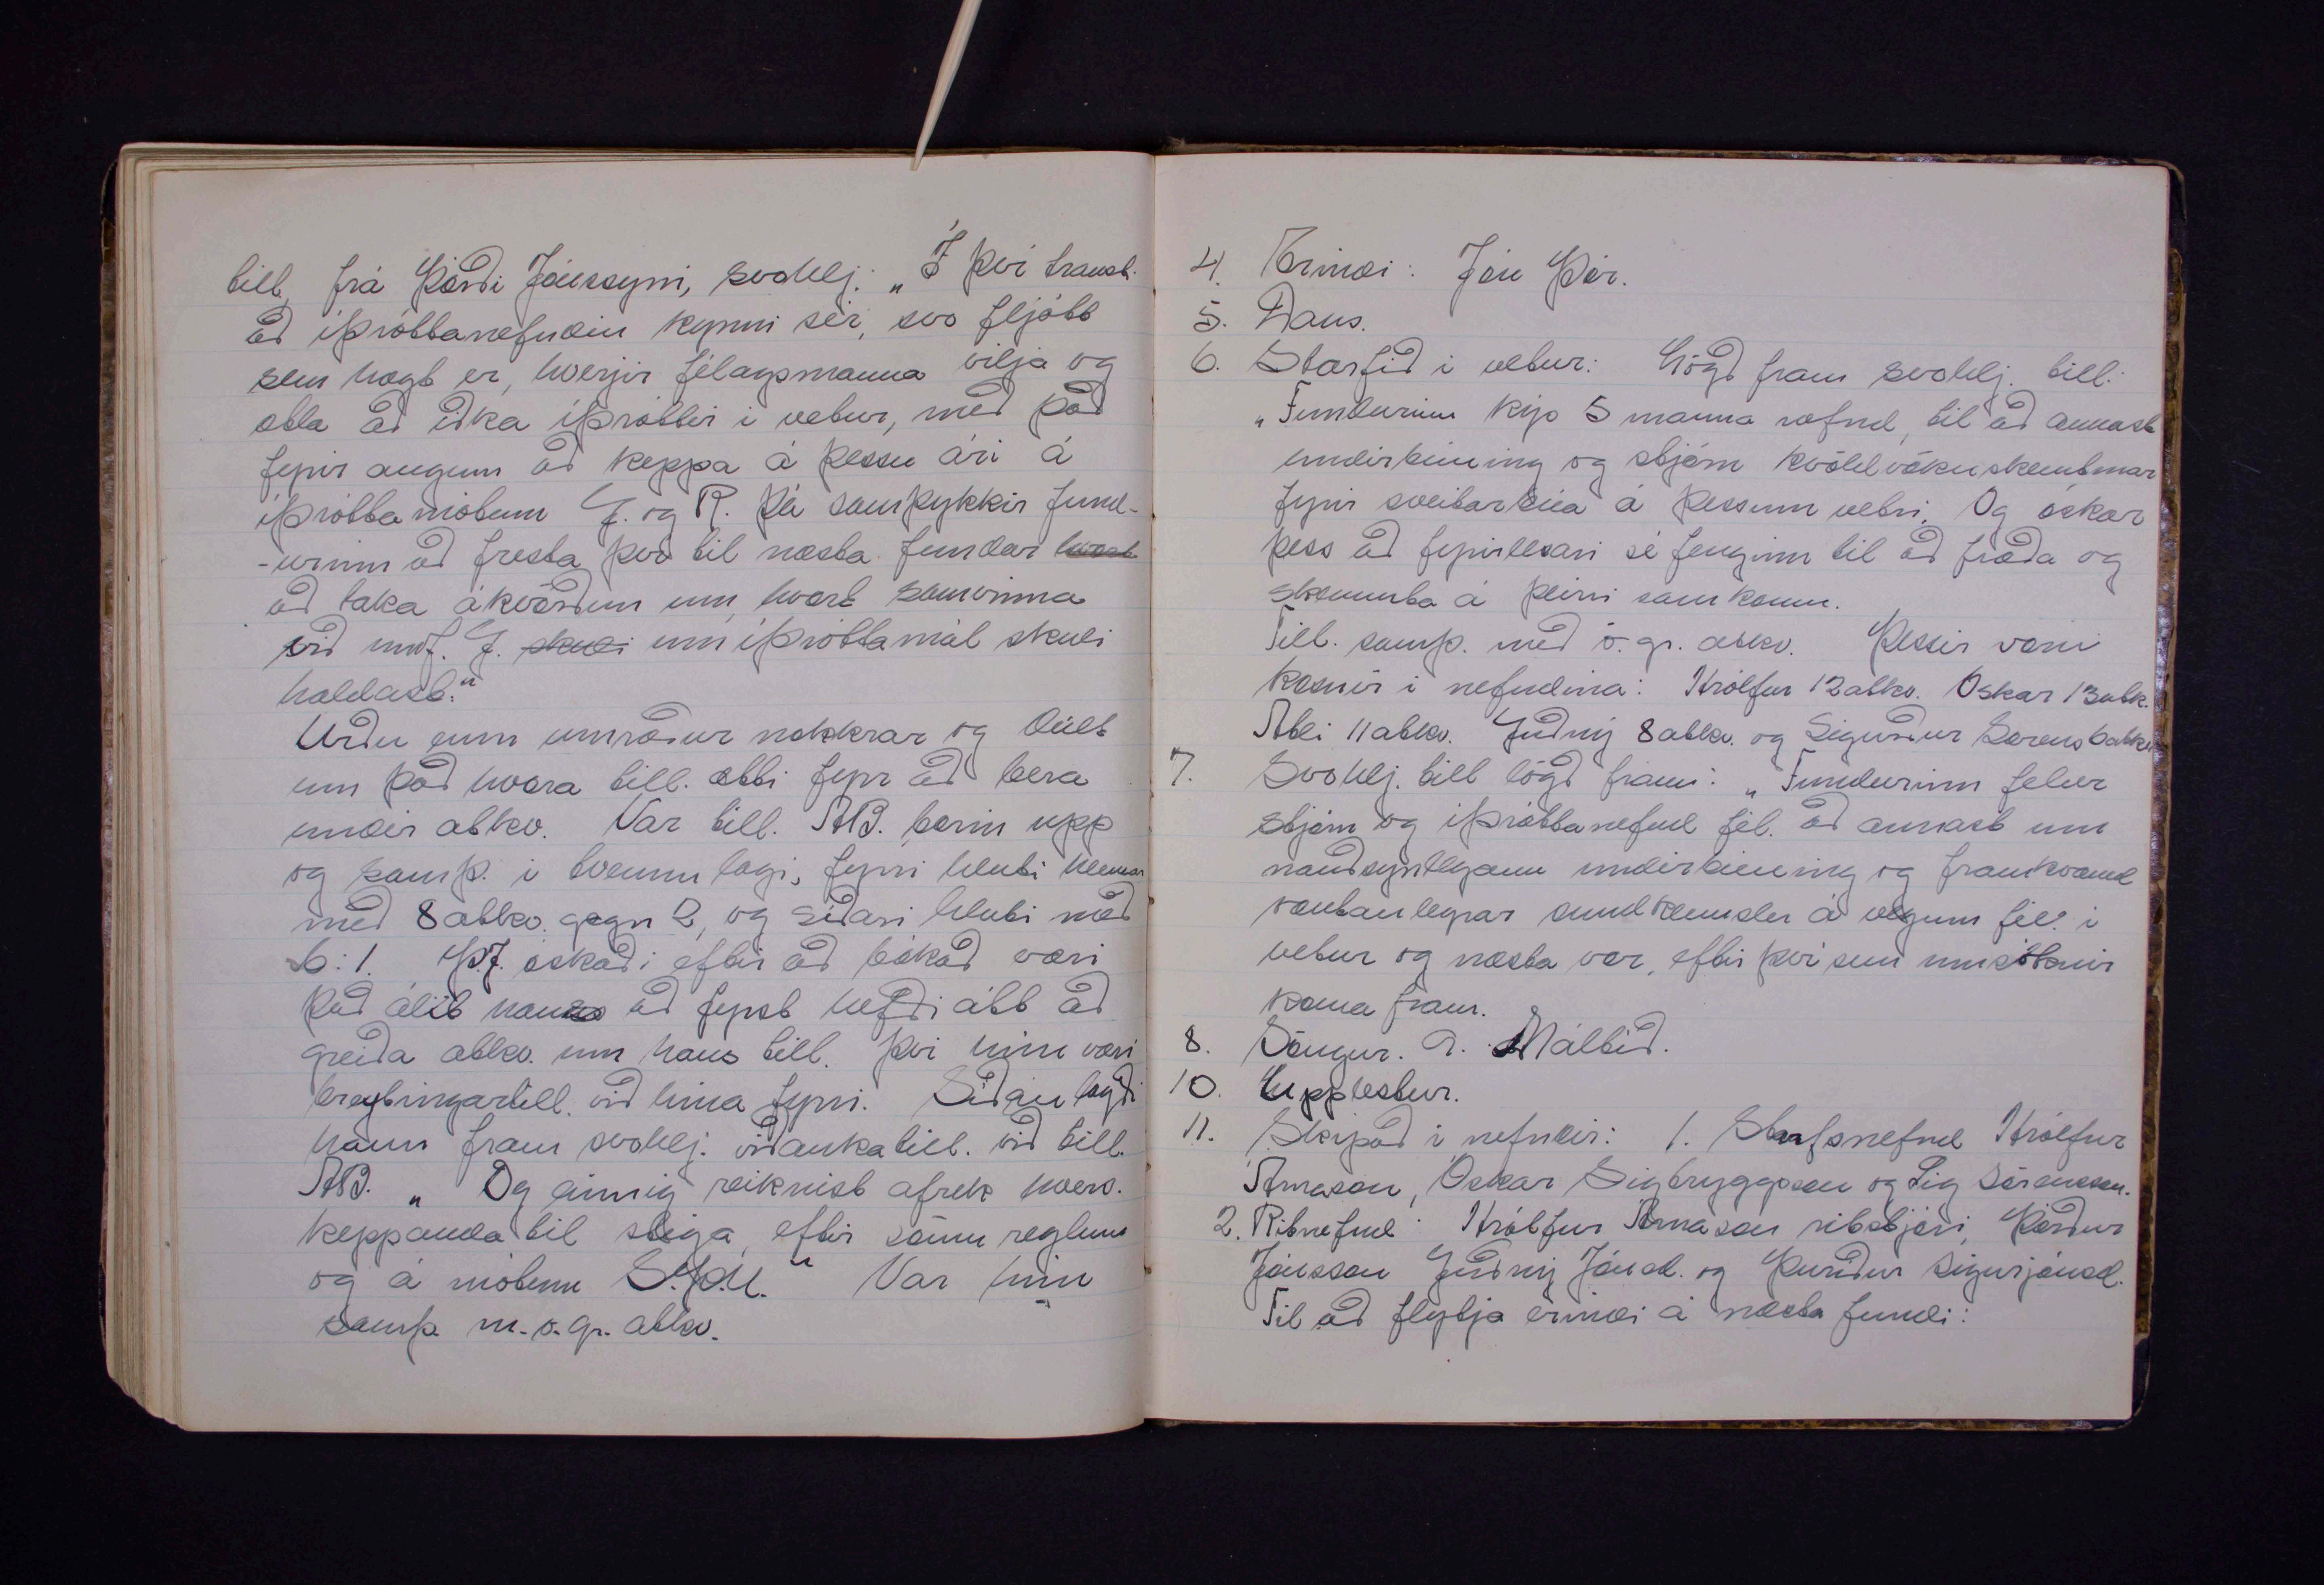 till. frá Þórði Jónssyni, svohlj: „Í því trausti
að íþróttanefndin kynni sér, svo fljótt
sem hægt er, hverjir félagsmanna vilja og
ætla að iðka íþróttir í vetur, með það
fyrir augum að keppa á þessu ári á
íþróttamótum G. og R. þá samþykkir fund-
-urinn að fresta því til næsta fundar hvort
að taka ákvörðun um, hvort samvinna
við umf. G. skuli um íþróttamál skuli
haldast."
Urðu enn umræður nokkrar og
um það hvora till. ætti fyr að bera
undir atkv. Var till. AB. borin upp
og samþ. í tvennu lagi, fyrri hluti hennar
með 8 atkv. gegn 2, og síðari hluti með
6:1. Þ.J. óskaði eftir að bókað væri
það álit hans að fyrst hefði átt að
greiða atkv. um hans till. því hún væri
breytingartill. við hina fyrri. Síðan lagði
hann fram svohlj. viðaukatill. við till.
AB. „Og einnig reiknist afrek hvers.
keppanda til stiga, eftir sömu reglum
og á mótum S.Þ.U." Var hún
samþ. m. ö. gr. atkv.
4. Erindi: Jón Þór.
5. Dans.
6. Starfið í vetur: Lögð fram svohlj. till:
„Fundurinn kýs 5 manna nefnd, til að annast
undirbúning og stjórn kvöldvökuskemtunar
fyrir sveitarbúa á þessum vetri. Og óskar
þess að fyrirlesari sé fenginn til að fræða og
skemmta á þeirri samkomu.
Till. samþ. með ö. gr. atkv. Þessir voru
kosnir í nefndina: Hrólfur 12 atkv. Óskar 13 atk.
Atli 11 atkv. Guðný 8 atkv. og Sigurður Sörens 6 atkv
7. Svohlj. till lögð fram: „Fundurinn felur
stjórn og íþróttanefnd fél. að annast um
nauðsynlegann undirbúning og framkvæmd
væntanlegrar sundkennslu á vegum fél. í
vetur og næsta vor, eftir því sem umsóknir
koma fram.
8. Söngur. 9. Máltíð.
10. Upplestur.
11. Skipað í nefndir: 1. Starfsnefnd Hrólfur
Árnason, Óskar Sigtryggsson og Sig Sörensson.
2. Ritnefnd: Hrólfur Árnason ritstjóri, Þórður
Jónsson Guðný Jónsd. og Þuríður Sigurjónsd.
Til að flytja erindi á næsta fundi: